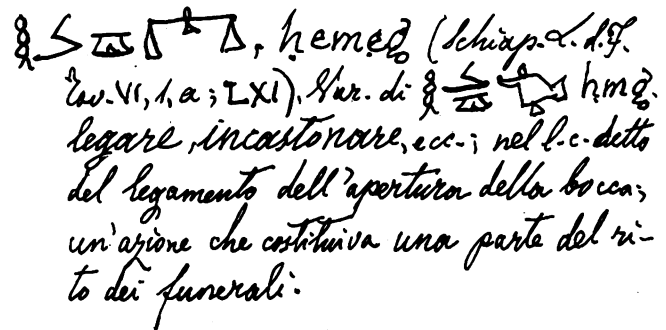 , ḥemeg̱ (Schiap. L. d. F.
Tav. VI, 1, a; LXI). Var. di ḥmg̱.
legare, incastonare, ecc.; nel l. c. detto
del legamento dell'apertura della bocca;
un'azione che costituiva una parte del ri-
to dei funerali.